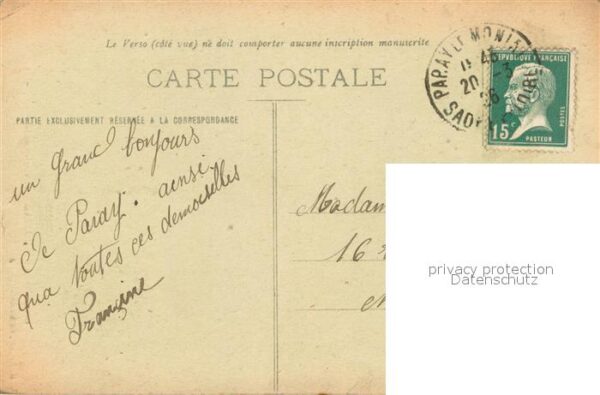 Le Verso (côté vue) ne doit comporter aucune inscription manuscrite
CARTE POSTALE
PARTIE EXCLUSIVEMENT RÉSERVÉE A LA CORRESPONDANCE
un grand bonjours
de Paray. ainsi
qua toutes ces demoiselles
Francine
PARAY-LE-MONIAL
20 -3
26
SAONE-&-LOIRE
REPUBLIQUE FRANÇAISE
15c
POSTES
PASTEUR
Madam
16
privacy protection
Datenschutz